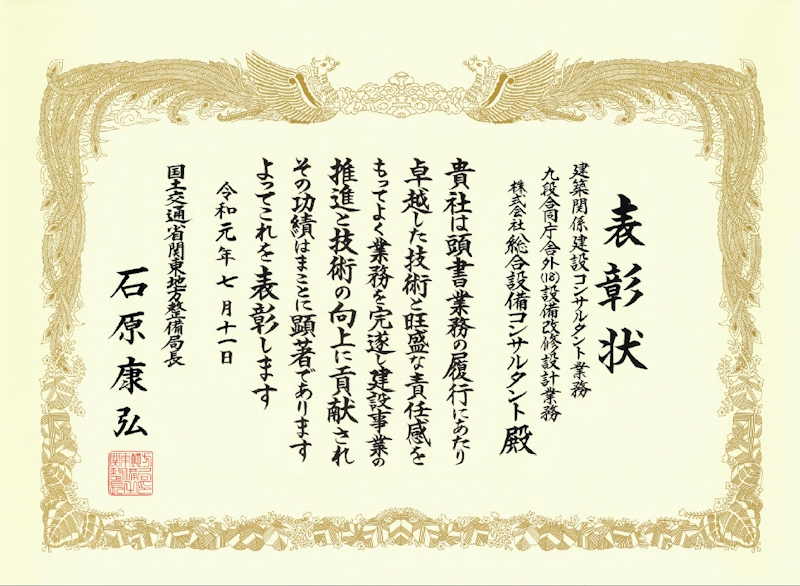 表彰状
建築関係建設コンサルタント業務
九段合同庁舎外(18)設備改修設計業務
株式会社 総合設備コンサルタント 殿
貴社は頭書業務の履行にあたり
卓越した技術と旺盛な責任感を
もってよく業務を完遂し建設事業の
推進と技術の向上に貢献され
その功績はまことに顕著であります
よってこれを表彰します
令和元年七月十一日
国土交通省関東地方整備局長
石原康弘